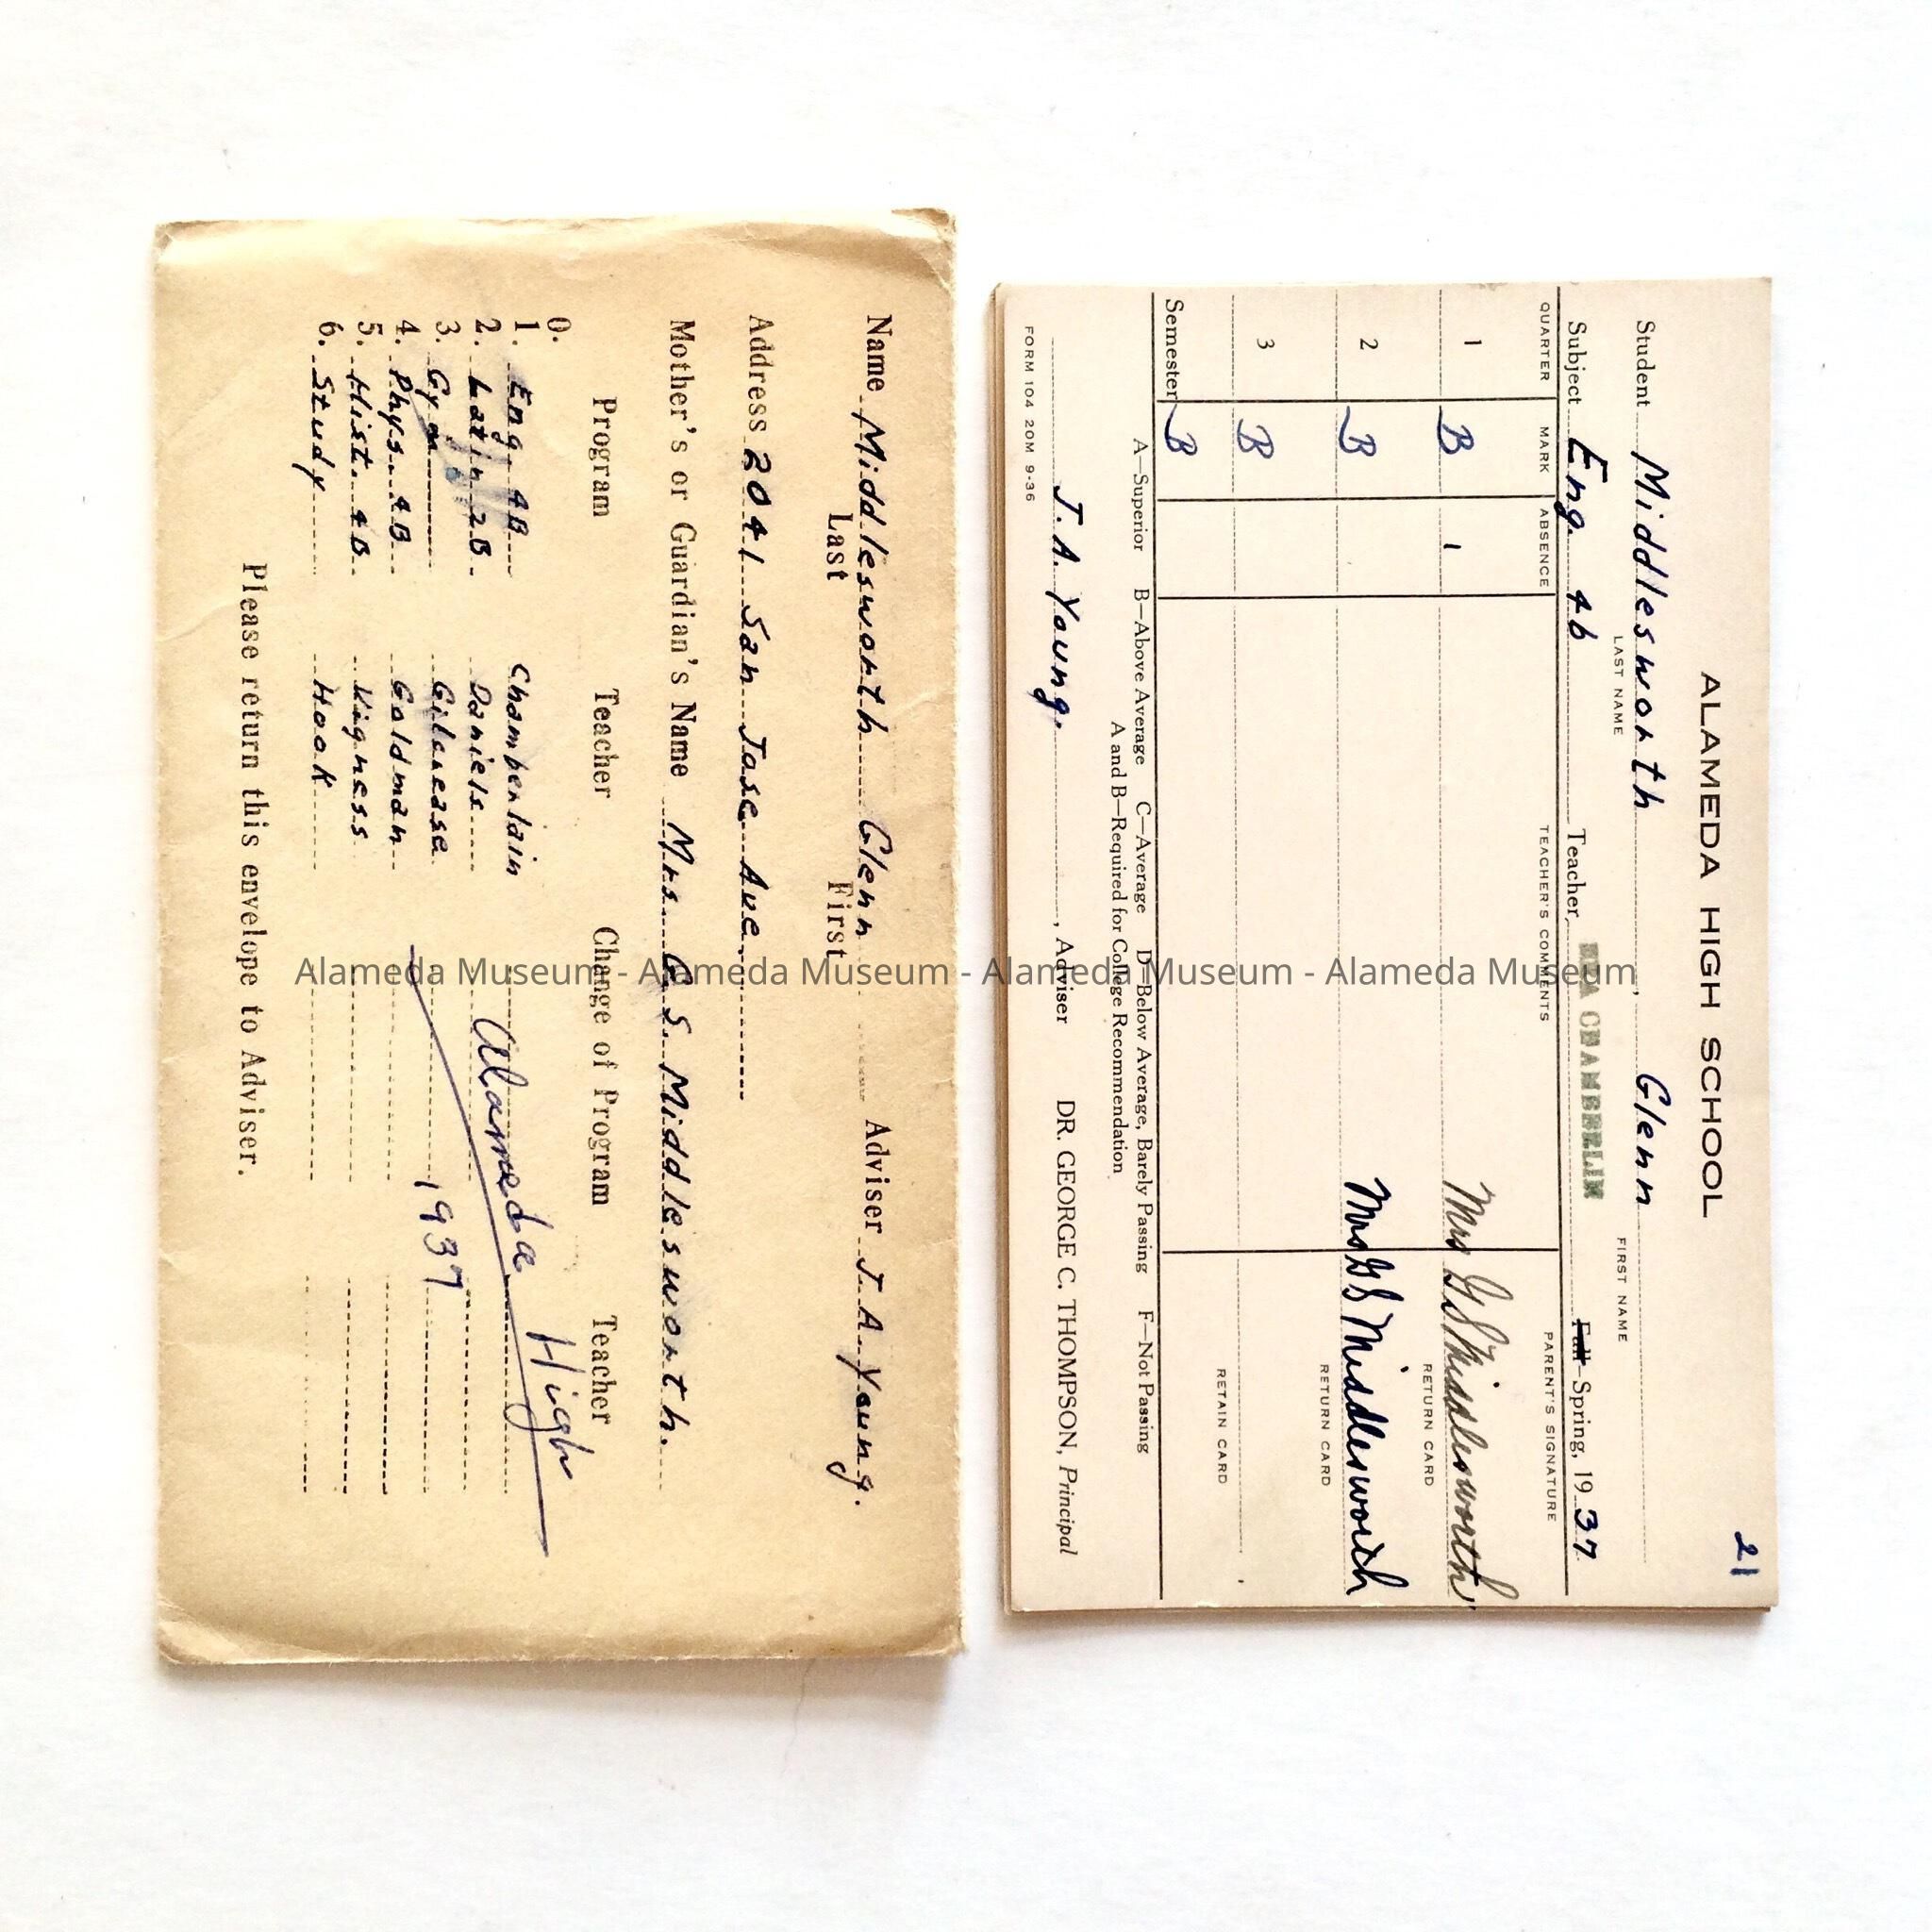 Name Middlesworth Glenn Adviser J. A. Young.
Last First
Address 2041 San Jose Ave.
Mother's or Guardian's Name Mrs. G. S. Middlesworth.
Program Teacher Change of Program Teacher
0.
1. Eng. 4B Chamberlain
2. Latin 2B Daniels
3. Gym
4. Phys. 4B Goldman
5. Hist. 4B. Vigness
6. Study Hook
Alameda High
1937
Please return this envelope to Adviser.
21
ALAMEDA HIGH SCHOOL
Student Middlesworth, Glenn
LAST NAME FIRST NAME
Subject Eng. 4b Teacher, CHAMBERLIN Fall-Spring, 1937
QUARTER MARK ABSENCE TEACHER'S COMMENTS PARENT'S SIGNATURE
1 B 1 Mrs G S Middlesworth
RETURN CARD
2 B Mrs G S Middlesworth
RETURN CARD
3 B
RETAIN CARD
Semester B
A—Superior B—Above Average C—Average D—Below Average, Barely Passing F—Not Passing
A and B—Required for College Recommendation
J. A. Young., Adviser DR. GEORGE C. THOMPSON, Principal
FORM 104 20M 9-36
Alameda Museum - Alameda Museum - Alameda Museum - Alameda Museum